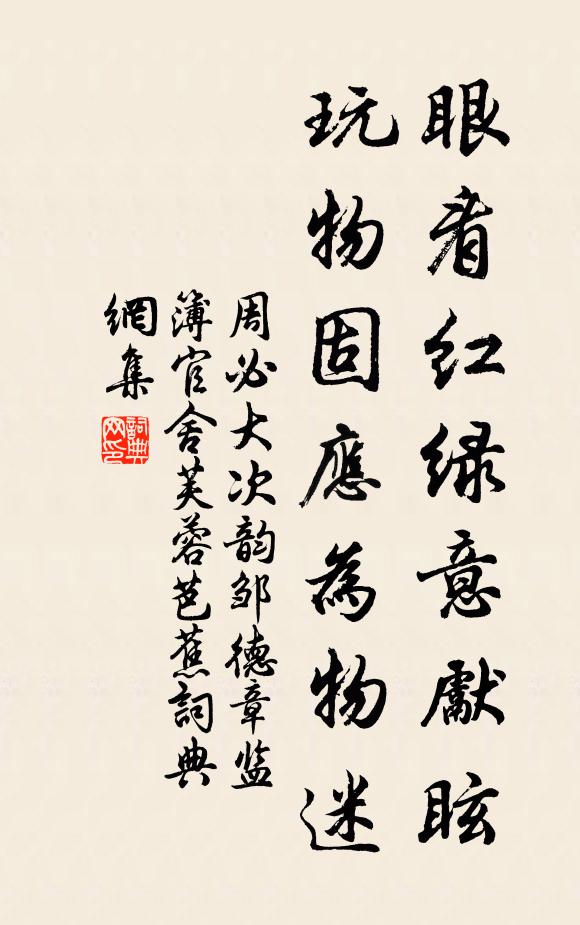 眼看红绿意獻眩
玩物固應為物迷
周必大次韵邹德章监
簿官舍芙蓉芭蕉詞典
網集
詞典
网印